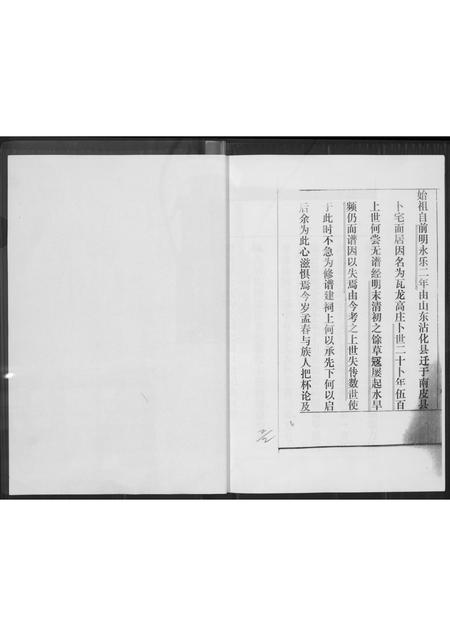 始祖自前明永乐二年由山东沾化县迁于南皮县
卜宅而居因名为瓦龙高庄卜世二十卜年伍百
上世何尝无谱经明末清初之馀草寇屡起水旱
频仍而谱因以失焉由今考之上世失传数世使
于此时不急为修谱建祠上何以承先下何以启
后余为此心滋惧焉今岁孟春与族人把杯论及